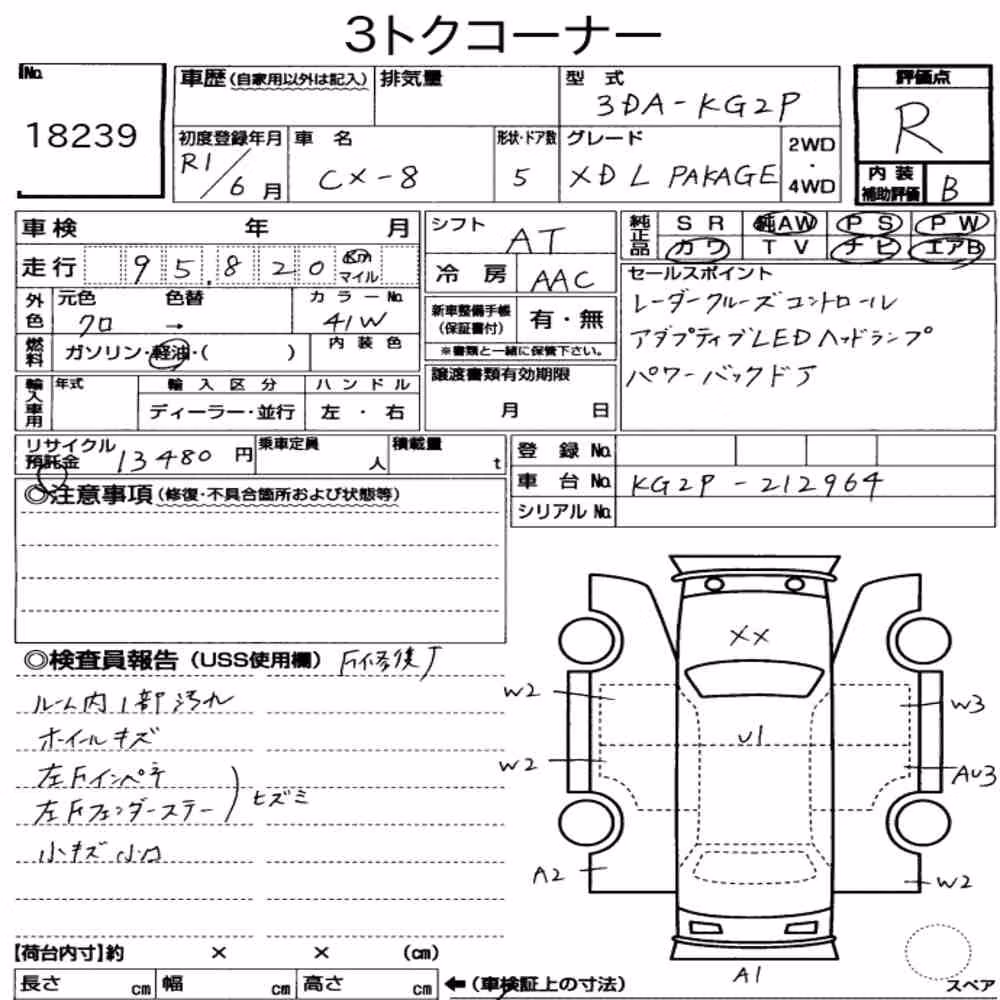 3トクコーナー
No. 18239
車歴 (自家用以外は記入) 排気量 型式 3DA-KG2P
初度登録年月 R1/6月 車名 CX-8 形状・ドア数 5 グレード XD L PAKAGE 2WD・4WD
評価点 R
内装補助評価 B
車検 年 月
走行 95,820 Km マイル
外色 元色 クロ 色替 → カラーNo. 41W
燃料 ガソリン・軽油・( ) 内装色
輸入車用 年式 輸入区分 ディーラー・並行 ハンドル 左・右
シフト AT
冷房 AAC
新車整備手帳 (保証書付) 有・無
※書類と一緒に保管下さい。
譲渡書類有効期限
月 日
純正品 SR 純AW PS PW
カワ TV ナビ エアB
セールスポイント
レーダークルーズコントロール
アダプティブLEDヘッドランプ
パワーバックドア
リサイクル預託金 13480円 乗車定員 人 積載量 t
登録No.
車台No. KG2P-212964
シリアルNo.
◎注意事項 (修復・不具合箇所および状態等)
◎検査員報告 (USS使用欄) F修復了
ルーム内1部汚れ
ホイールキズ
左Fインペチ
左Fフェンダーステー ヒズミ
小キズ小凹
XX
W2 W3
U1
W2 AU3
A2 W2
A1
スペア
【荷台内寸】約 × × (cm)
長さ cm 幅 cm 高さ cm ←(車検証上の寸法)